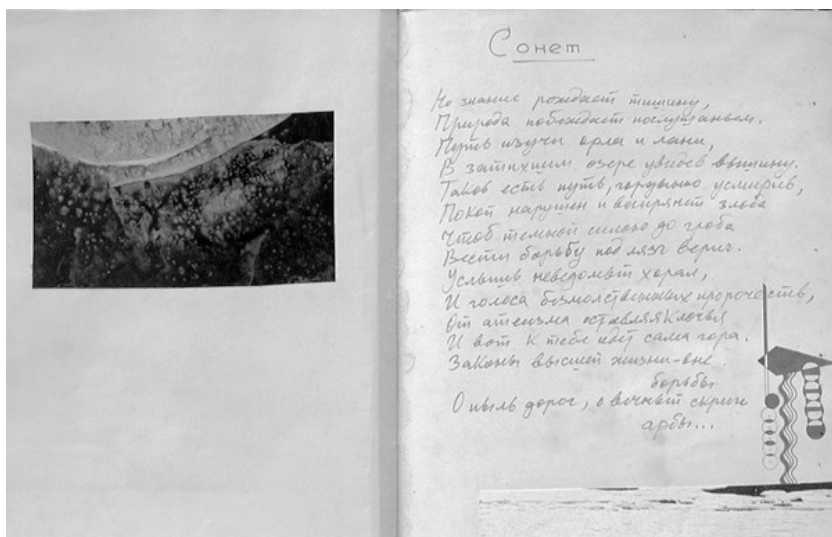 Сонет
Но знание рождает тишину,
Природа побеждает послушаньем.
Путь изучи орла и лани,
В затихшем озере увидев вышину.
Таков есть путь, гордыню усмирив,
Покой нарушен и воспрянет злоба
Чтоб темной силою до гроба
Вести борьбу под лязг вериг.
Услышив неведомый хорал,
И голоса безмолвствовавших пророчеств,
От атеизма оставляя клочья
И вот к тебе идёт сама гора.
Законы высшей жизни-вне
борьбы
О пыль дорог, о вечный скрип
арбы...